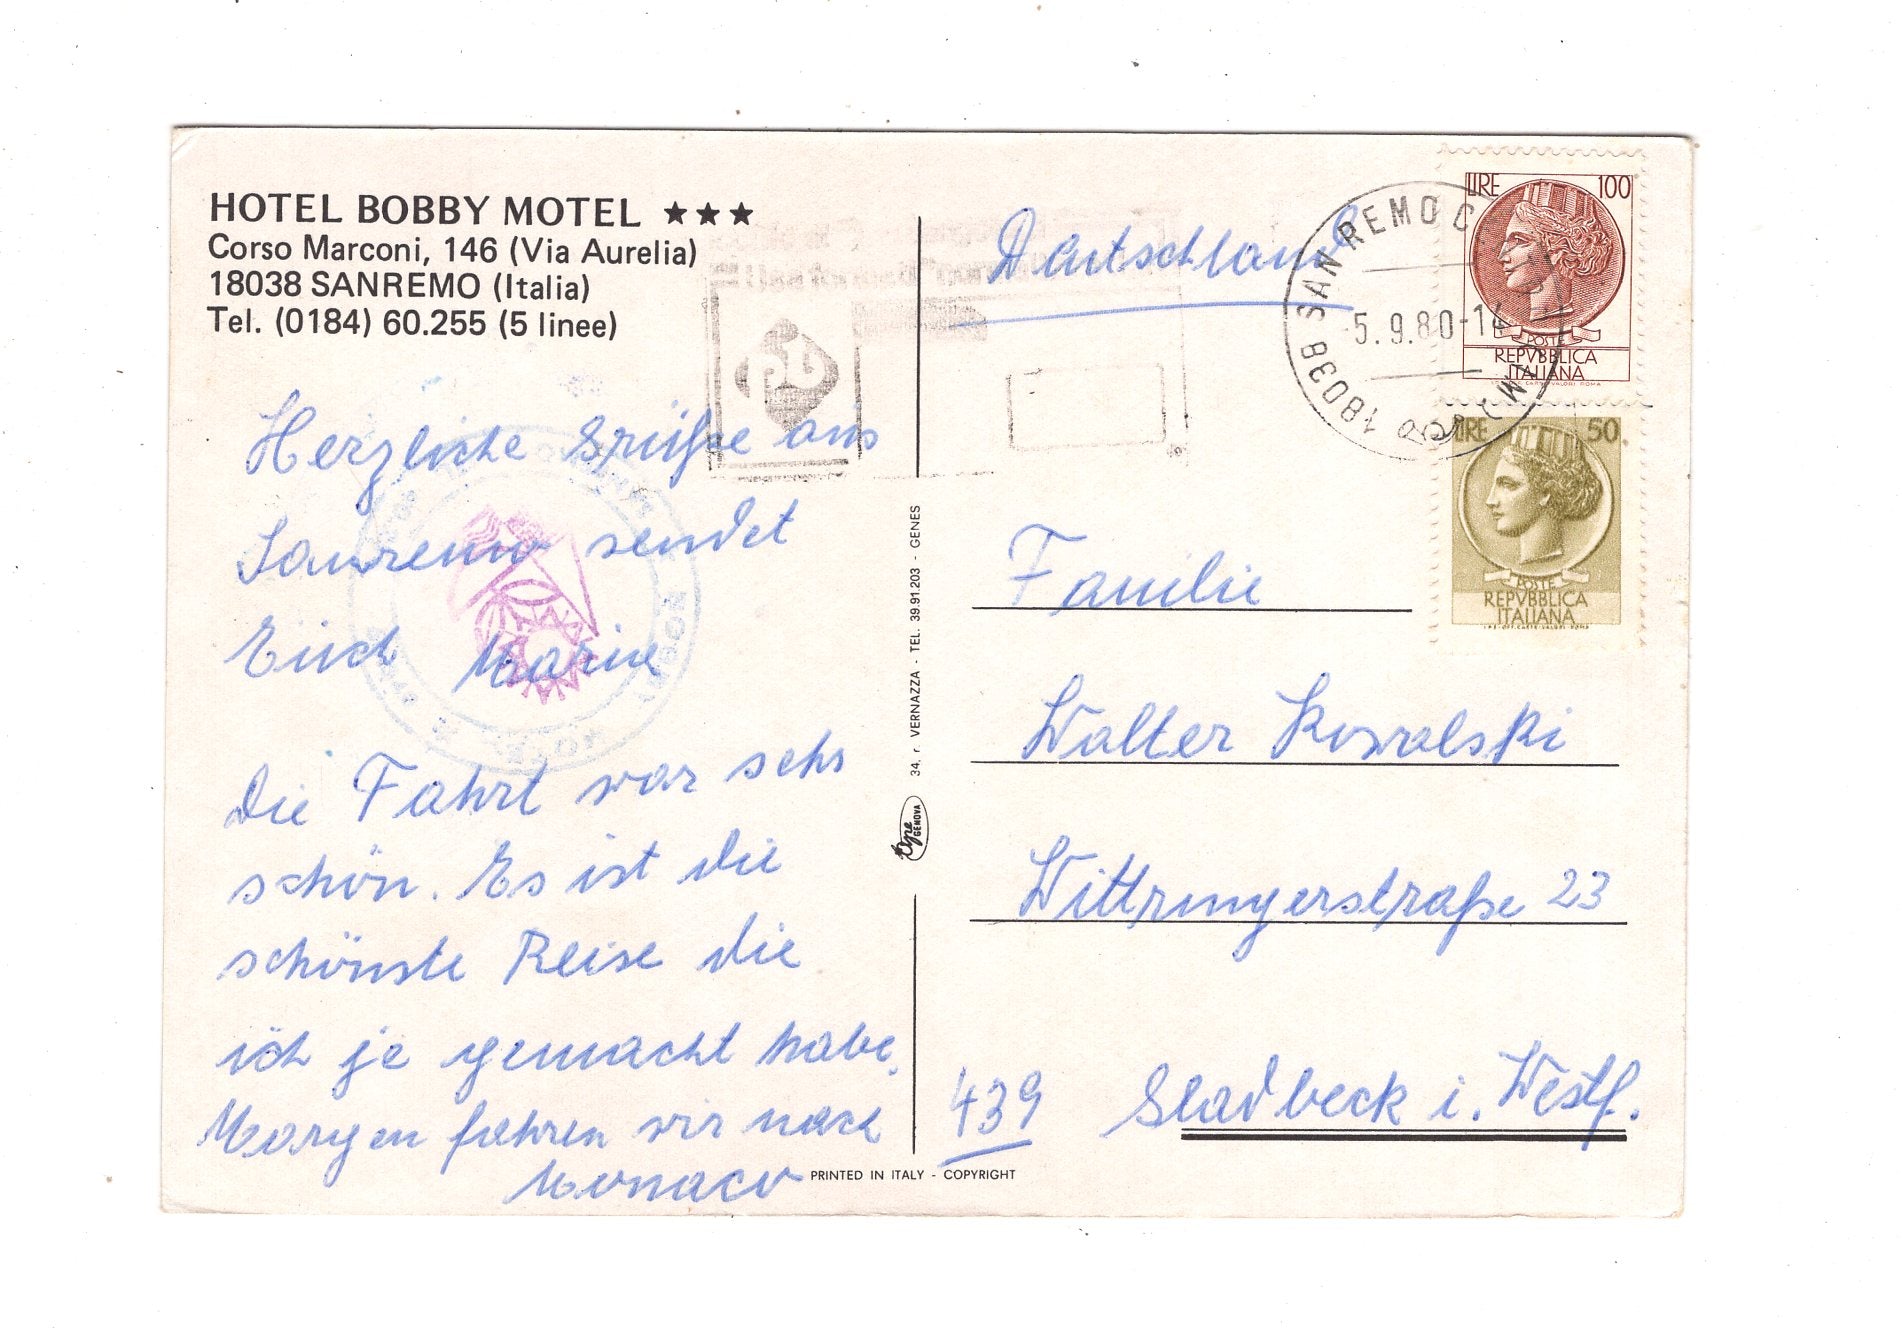 HOTEL BOBBY MOTEL ★★★
Corso Marconi, 146 (Via Aurelia)
18038 SANREMO (Italia)
Tel. (0184) 60.255 (5 linee)
Herzliche Grüße aus
Sanremo sendet
Euch Marie
Die Fahrt war sehr
schön. Es ist die
schönste Reise die
ich je gemacht habe.
Morgen fahren wir nach
Monaco
34, r VERNAZZA - TEL. 39.91.203 - GENES
GENOVA
PRINTED IN ITALY - COPYRIGHT
Deutschland
18038 SAN REMO C
5.9.80-14
LIRE 100
POSTE
REPVBBLICA
ITALIANA
LIRE 50
POSTE
REPVBBLICA
ITALIANA
Familie
Walter Kowalski
Wittringerstraße 23
439 Gladbeck i. Westf.